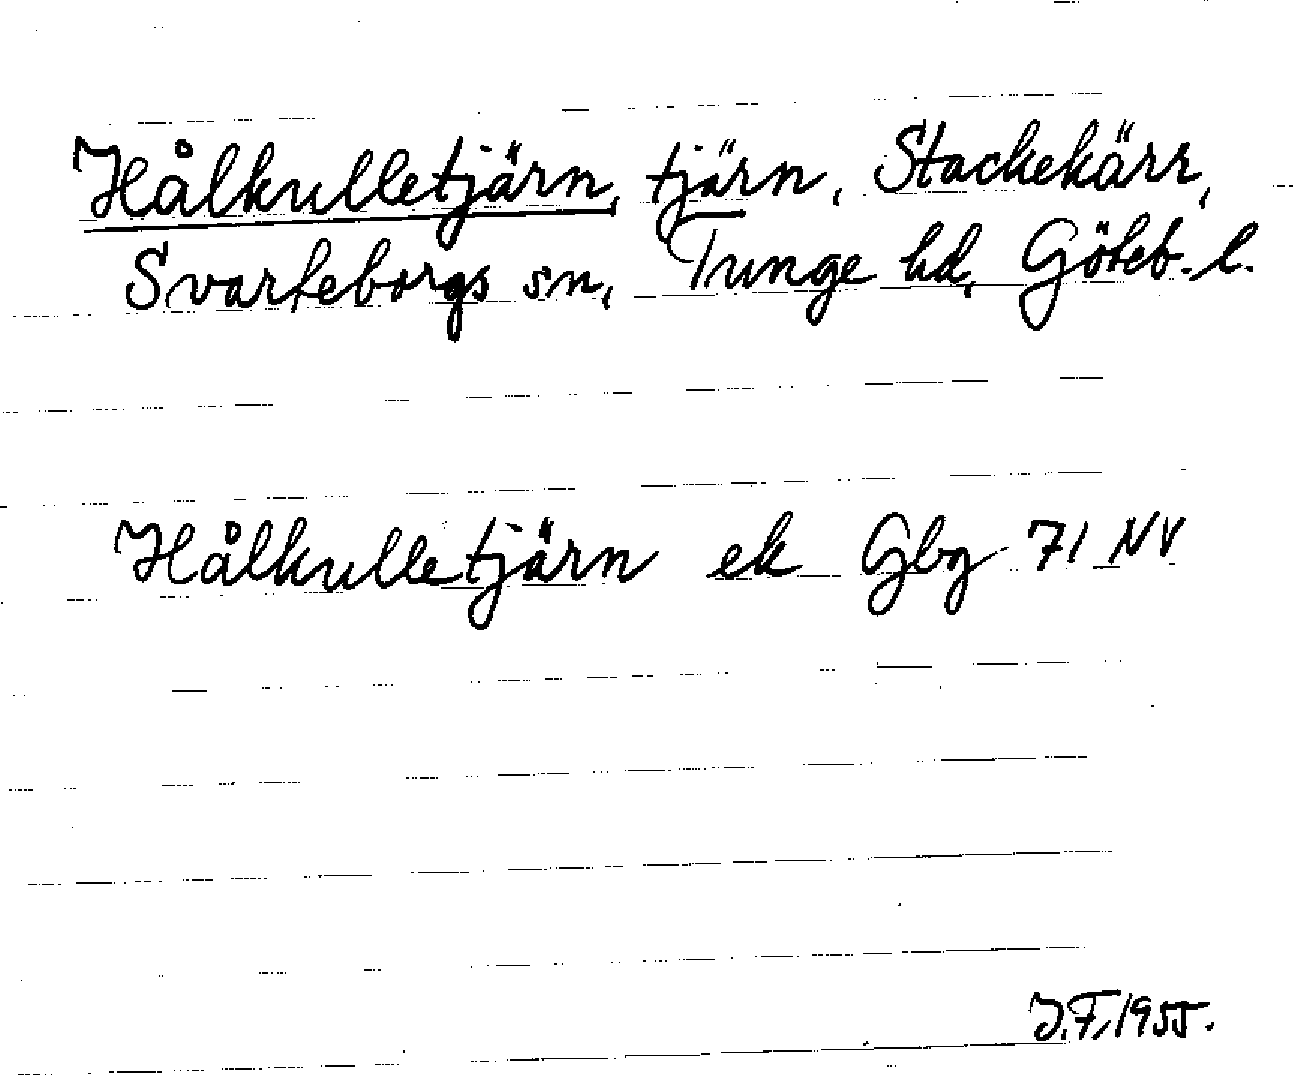 Hålkulletjärn, tjärn, Stackekärr,
Svarteborgs sn, Tunge hd, Göteb. l.
Hålkulletjärn ek Gbg 71 NV
J.F. 1955.